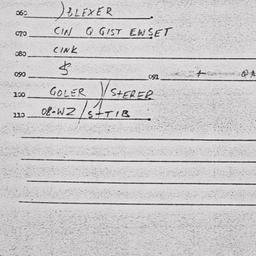 060 BLEXER
070 CIN Q GIST EWSET
080 CINK
090 $ 091 +
100 GOLER )/STEREP
110 08-WZ/S+TIB